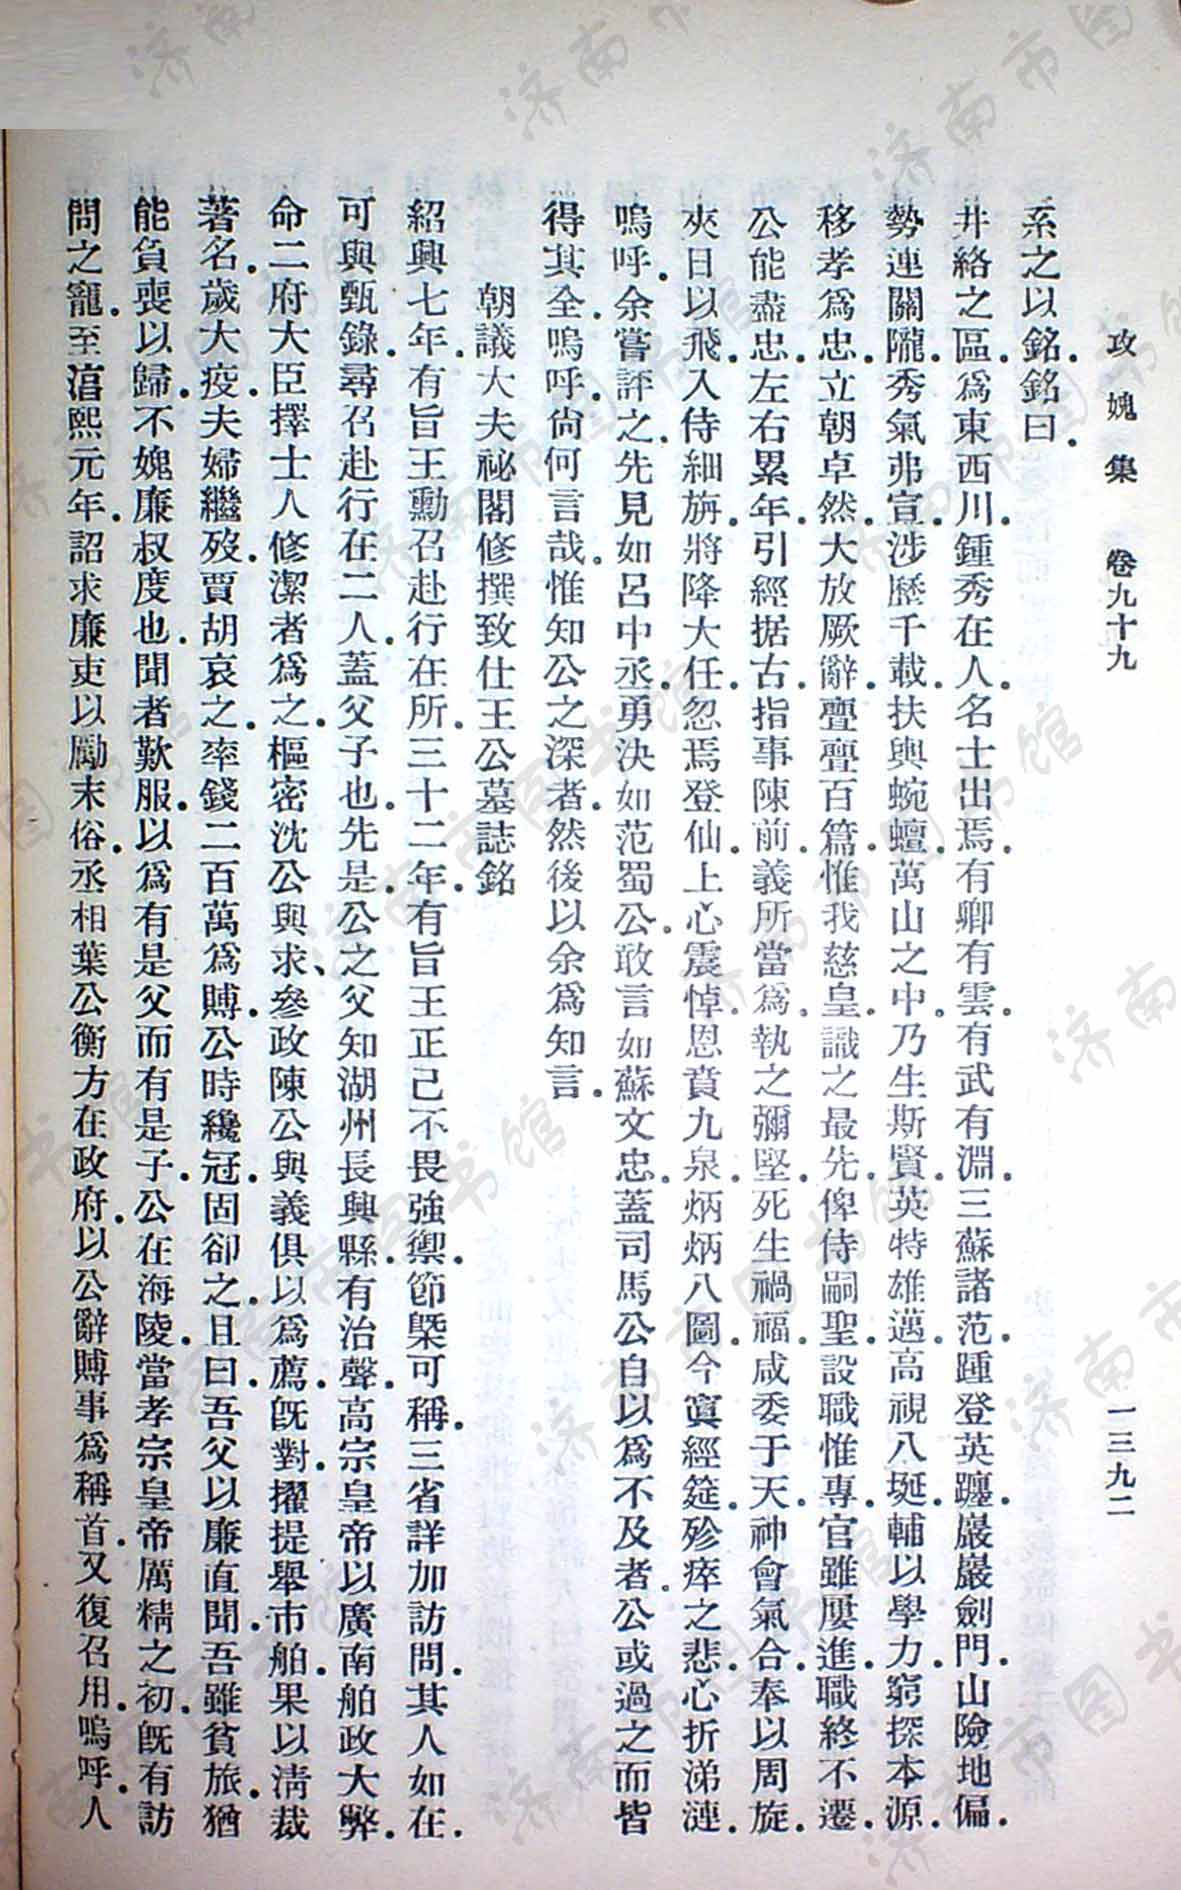 攻媿集　卷九十九　一三九二
系之以銘銘曰。
井絡之區。爲東西川。鍾秀在人。名士出焉。有卿有雲。有武有淵。三蘇諸范。踵登英躔。巖巖劍門。山險地偏。
勢連關隴。秀氣弗宣。涉歷千載。扶輿蜿蟺。萬山之中。乃生斯賢。英特雄邁。高視八埏。輔以學力。窮探本源。
移孝爲忠。立朝卓然。大放厥辭。亹亹百篇。惟我慈皇。識之最先。俾侍嗣聖。設職惟專。官雖屢進。職終不遷。
公能盡忠。左右累年。引經据古。指事陳前。義所當爲。執之彌堅。死生禍福。咸委于天。神會氣合。奉以周旋。
夾日以飛。入侍細旃。將降大任。忽焉登仙。上心震悼。恩賁九泉。炳炳八圖。今寘經筵。殄瘁之悲。心折涕漣。
嗚呼。余嘗評之。先見如呂中丞。勇決如范蜀公。敢言如蘇文忠。蓋司馬公自以爲不及者。公或過之而皆
得其全。嗚呼。尙何言哉。惟知公之深者。然後以余爲知言。
朝議大夫祕閣修撰致仕王公墓誌銘
紹興七年。有旨王勳召赴行在所。三十二年。有旨王正己不畏強禦。節槩可稱。三省詳加訪問。其人如在。
可與甄錄。尋召赴行在二人。蓋父子也。先是。公之父知湖州長興縣。有治聲。高宗皇帝以廣南舶政大弊。
命二府大臣擇士人修潔者爲之。樞密沈公與求、參政陳公與義俱以爲薦。旣對。擢提舉市舶。果以淸裁
著名。歲大疫。夫婦繼歿。賈胡哀之。率錢二百萬爲賻。公時纔冠。固卻之。且曰。吾父以廉直聞。吾雖貧旅。猶
能負喪以歸。不媿廉叔度也。聞者歎服。以爲有是父而有是子。公在海陵。當孝宗皇帝厲精之初。旣有訪
問之寵。至淳熙元年。詔求廉吏以勵末俗。丞相葉公衡方在政府。以公辭賻事爲稱首。又復召用。嗚呼。人